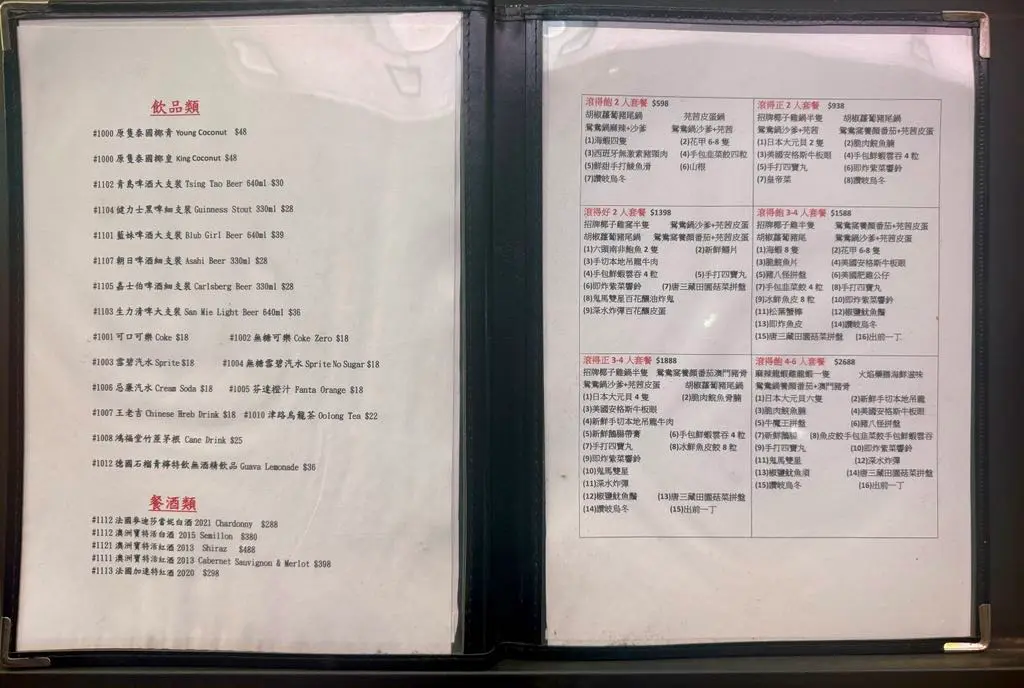 飲品類
#1000 原隻泰國椰青 Young Coconut $48
#1000 原隻泰國椰皇 King Coconut $48
#1102 青島啤酒大支裝 Tsing Tao Beer 640ml $30
#1104 健力士黑啤細支裝 Guinness Stout 330ml $28
#1101 藍妹啤酒大支裝 Blub Girl Beer 640ml $39
#1107 朝日啤酒細支裝 Asahi Beer 330ml $28
#1105 嘉士伯啤酒細支裝 Carlsberg Beer 330ml $28
#1103 生力清啤大支裝 San Mie Light Beer 640ml $36
#1001 可口可樂 Coke $18 #1002 無糖可樂 Coke Zero $18
#1003 雪碧汽水 Sprite $18 #1004 無糖雪碧汽水 Sprite No Sugar $18
#1006 忌廉汽水 Cream Soda $18 #1005 芬達橙汁 Fanta Orange $18
#1007 王老吉 Chinese Hreb Drink $18 #1010 津路烏龍茶 Oolong Tea $22
#1008 鴻福堂竹蔗茅根 Cane Drink $25
#1012 德國石榴青檸特飲無酒精飲品 Guava Lemonade $36
餐酒類
#1112 法國麥迪莎當妮白酒 2021 Chardonny $288
#1112 澳洲寶特活白酒 2015 Semillon $380
#1121 澳洲寶特活紅酒 2013 Shiraz $488
#1111 澳洲寶特活紅酒 2013 Cabernet Sauvignon & Merlot $398
#1113 法國加達特紅酒 2020 $298
滾得飽 2 人套餐 $598
胡椒蘿蔔豬尾鍋 芫茜皮蛋鍋
鴛鴦鍋麻辣+沙爹 鴛鴦鍋沙爹+芫茜
(1)海蝦四隻 (2)花甲 6-8 隻
(3)西班牙無激素豬頸肉 (4)手包韭菜餃四粒
(5)鮮甜手打鯪魚滑 (6)山根
(7)讚岐烏冬
滾得正 2 人套餐 $938
招牌椰子雞鍋半隻 胡椒蘿蔔豬尾鍋
鴛鴦鍋沙爹+芫茜 鴛鴦窩養顏番茄+芫茜皮蛋
(1)日本大元貝 2 隻 (2)脆肉鯇魚腩
(3)美國安格斯牛板眼 (4)手包鮮蝦雲吞 4 粒
(5)手打四寶丸 (6)即炸紫菜響鈴
(7)皇帝菜 (8)讚岐烏冬
滾得好 2 人套餐 $1398
招牌椰子雞窩半隻 鴛鴦鍋沙爹+芫茜皮蛋
胡椒蘿蔔豬尾鍋 鴛鴦窩養顏番茄+芫茜皮蛋
(1)六頭南非鮑魚 2 隻 (2)新鮮鱔片
(3)手切本地吊龍牛肉
(4)手包鮮蝦雲吞 4 粒 (5)手打四寶丸
(6)即炸紫菜響鈴 (7)唐三藏田園菇菜拼盤
(8)鬼馬雙星百花釀油炸鬼
(9)深水炸彈百花釀皮蛋
滾得飽 3-4 人套餐 $1588
招牌椰子雞半隻 鴛鴦鍋沙爹+芫茜皮蛋
胡椒蘿蔔豬尾 鴛鴦窩養顏番茄+芫茜皮蛋
(1)海蝦 8 隻 (2)花甲 6-8 隻
(3)脆鯇魚片 (4)美國安格斯牛板眼
(5)豬八怪拼盤 (6)美國肥雞公仔
(7)手包韭菜餃 4 粒 (8)手打四寶丸
(9)冰鮮魚皮 8 粒 (10)即炸紫菜響鈴
(11)松葉蟹棒 (12)椒鹽魷魚鬚
(13)即炸魚皮 (14)讚岐烏冬
(15)唐三藏田園菇菜拼盤 (16)出前一丁
滾得正 3-4 人套餐 $1888
招牌椰子雞鍋半隻 鴛鴦鍋養顏番茄澳門豬骨
鴛鴦鍋沙爹+芫茜皮蛋 胡椒蘿蔔豬尾鍋
(1)日本大元貝 4 隻 (2)脆肉鯇魚骨腩
(3)美國安格斯牛板眼
(4)新鮮手切本地吊龍牛肉
(5)新鮮鵝腸帶膏 (6)手包鮮蝦雲吞 4 粒
(7)手打四寶丸 (8)冰鮮魚皮餃 8 粒
(9)即炸紫菜響鈴
(10)鬼馬雙星
(11)深水炸彈
(12)椒鹽魷魚鬚 (13)唐三藏田園菇菜拼盤
(14)讚岐烏冬 (15)出前一丁
滾得飽 4-6 人套餐 $2688
麻辣龍蝦雞龍蝦一隻 火焰藥膳海鮮滋味
鴛鴦鍋養顏番茄+澳門豬骨
(1)日本大元貝六隻 (2)新鮮手切本地吊龍
(3)脆肉鯇魚腩 (4)美國安格斯牛板眼
(5)牛魔王拼盤 (6)豬八怪拼盤
(7)新鮮鵝腸 (8)魚皮餃手包韭菜餃手包鮮蝦雲吞
(9)手打四寶丸 (10)即炸紫菜響鈴
(11)鬼馬雙星 (12)深水炸彈
(13)椒鹽魷魚須 (14)唐三藏田園菇菜拼盤
(15)讚岐烏冬 (16)出前一丁